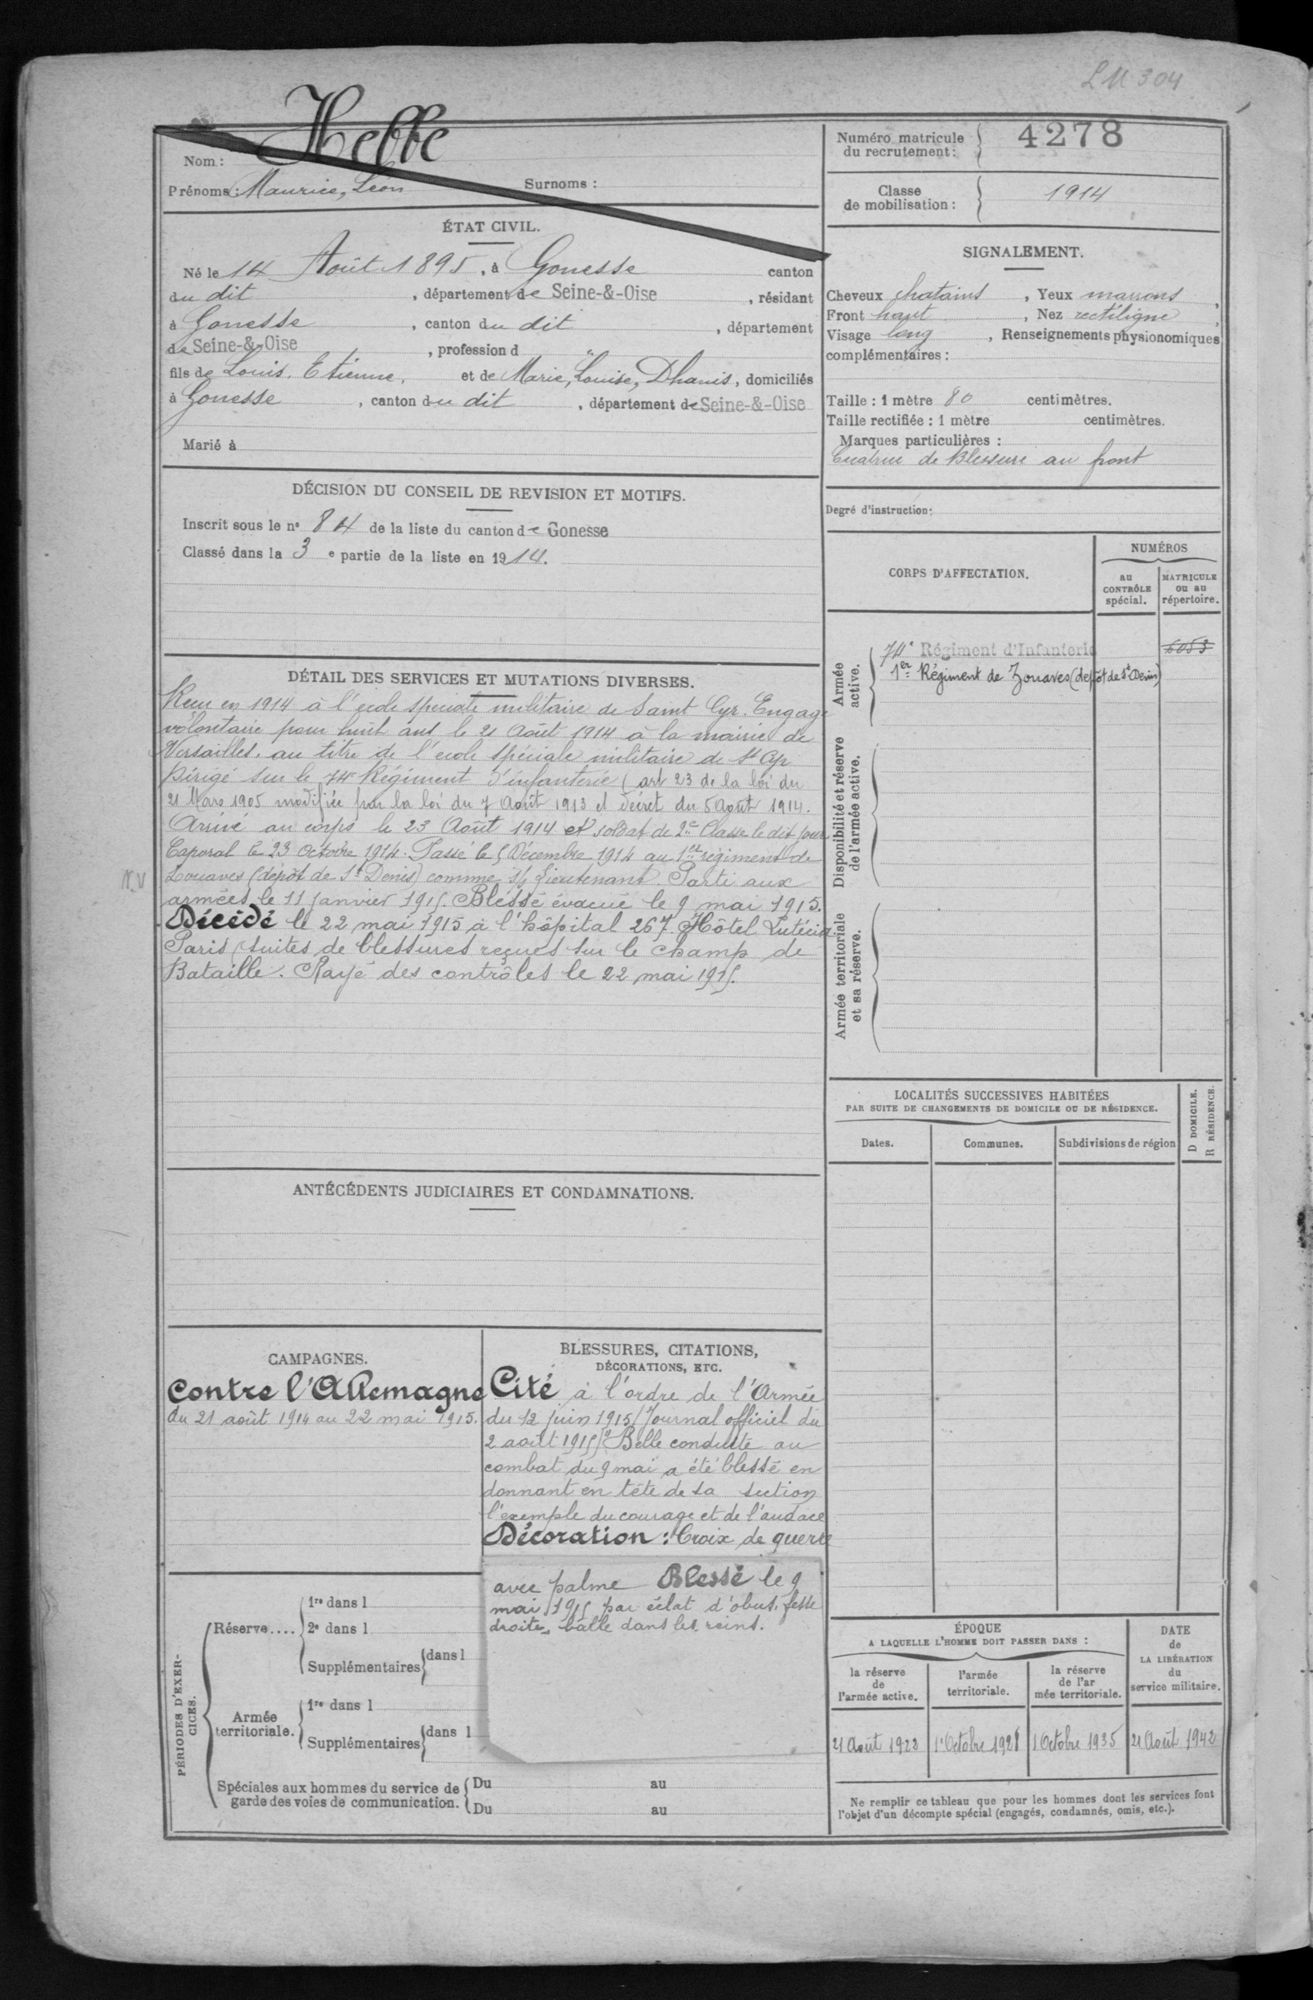 LM 304
Nom : Hebbe
Prénoms : Maurice, Léon Surnoms :
Numéro matricule du recrutement : 4278
Classe de mobilisation : 1914
ÉTAT CIVIL.
Né le 14 Août 1895, à Gonesse canton
du dit, département de Seine-&-Oise, résidant
à Gonesse, canton du dit, département
de Seine-&-Oise, profession d "
fils de Louis, Etienne, et de Marie, Louise, Dhanis, domiciliés
à Gonesse, canton du dit, département de Seine-&-Oise
Marié à
SIGNALEMENT.
Cheveux chatains, Yeux marrons,
Front haut, Nez rectiligne,
Visage long, Renseignements physionomiques
complémentaires :
Taille : 1 mètre 80 centimètres.
Taille rectifiée : 1 mètre centimètres.
Marques particulières :
Cicatrice de blessure au front
DÉCISION DU CONSEIL DE REVISION ET MOTIFS.
Inscrit sous le n° 84 de la liste du canton de Gonesse
Classé dans la 3 e partie de la liste en 1914.
Degré d'instruction :
CORPS D'AFFECTATION.
NUMÉROS
au CONTRÔLE spécial.
MATRICULE ou au répertoire.
Armée active.
74e Régiment d'Infanterie 6053
1er Régiment de Zouaves (dépôt de St Denis)
Disponibilité et réserve de l'armée active.
Armée territoriale et sa réserve.
DÉTAIL DES SERVICES ET MUTATIONS DIVERSES.
Reçu en 1914 à l'école spéciale militaire de Saint Cyr. Engagé
volontaire pour huit ans le 21 Août 1914 à la mairie de
Versailles. au titre de l'école spéciale militaire de St Cyr
Dirigé sur le 74e Régiment d'infanterie (art 23 de la loi du
21 Mars 1905 modifiée par la loi du 7 Août 1913 et décret du 5 Août 1914.
Arrivé au corps le 23 Août 1914 et soldat de 2e Classe le dit jour
Caporal le 23 octobre 1914. Passé le 5 Décembre 1914 au 1er régiment de
Zouaves (dépôt de St Denis) comme s/ Lieutenant. Parti aux
armées le 11 janvier 1915. Blessé évacué le 9 mai 1915.
N.V
Décédé le 22 mai 1915 à l'hôpital 267 Hôtel Lutécia
Paris suites de blessures reçues sur le champ de
Bataille. Rayé des contrôles le 22 mai 1915.
LOCALITÉS SUCCESSIVES HABITÉES
PAR SUITE DE CHANGEMENTS DE DOMICILE OU DE RÉSIDENCE.
Dates. Communes. Subdivisions de région
D DOMICILE.
R RÉSIDENCE.
ANTÉCÉDENTS JUDICIAIRES ET CONDAMNATIONS.
CAMPAGNES.
Contre l'Allemagne
du 21 août 1914 au 22 mai 1915.
BLESSURES, CITATIONS,
DÉCORATIONS, ETC.
Cité à l'ordre de l'Armée
du 12 juin 1915 (Journal officiel du
2 août 1915) "Belle conduite au
combat du 9 mai a été blessé en
donnant en tête de sa section
l'exemple du courage et de l'audace
Décoration : Croix de guerre
avec palme Blessé le 9
mai 1915 par éclat d'obus, fesse
droite, balle dans les reins.
PÉRIODES D'EXERCICES.
Réserve....
1re dans l
2e dans l
Supplémentaires dans l
Armée territoriale.
1re dans l
Supplémentaires dans l
Spéciales aux hommes du service de
garde des voies de communication.
Du au
Du au
ÉPOQUE
A LAQUELLE L'HOMME DOIT PASSER DANS :
la réserve de l'armée active.
l'armée territoriale.
la réserve de l'armée territoriale.
DATE de LA LIBÉRATION du service militaire.
21 Août 1922 1er Octobre 1928 1 Octobre 1935 21 Août 1942
Ne remplir ce tableau que pour les hommes dont les services font
l'objet d'un décompte spécial (engagés, condamnés, omis, etc.).